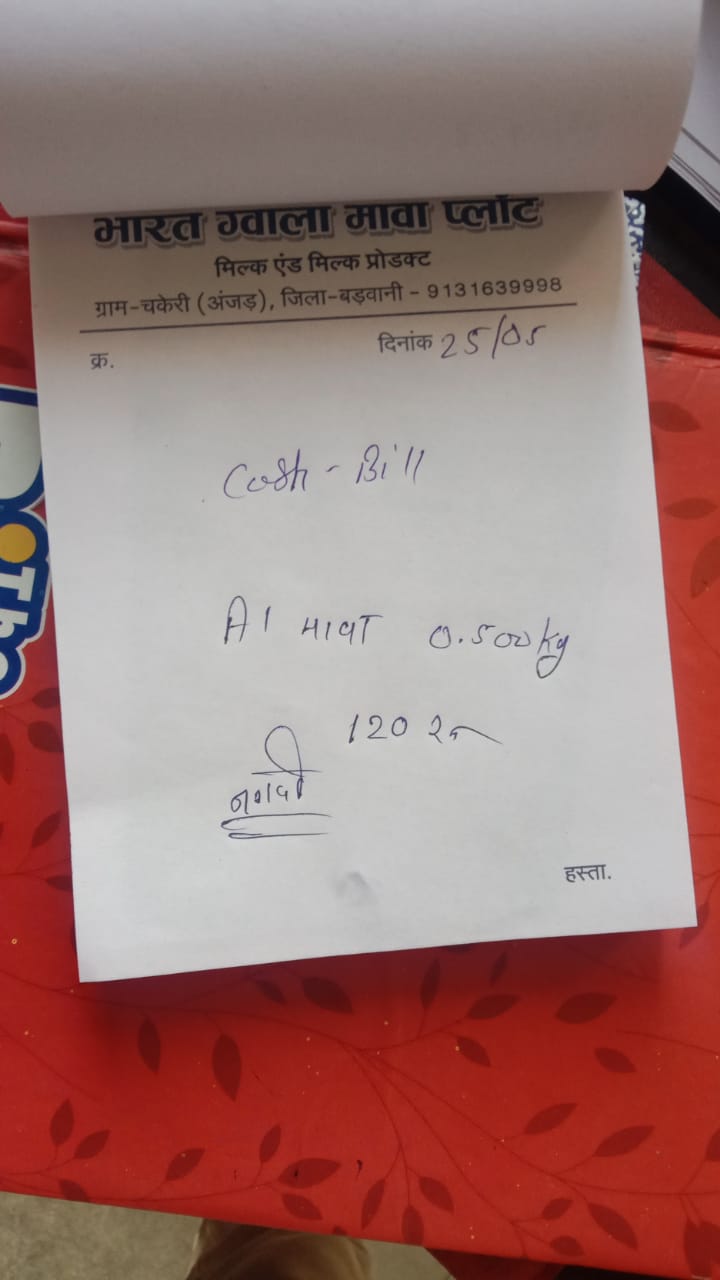 भारत ग्वाला मावा प्लांट
मिल्क एंड मिल्क प्रोडक्ट
ग्राम-चकेरी (अंजड़), जिला-बड़वानी - 9131639998
क्र.
दिनांक 25/05
Cash - Bill
A1 मावा 0.500 kg
120 रु
नगदी
हस्ता.